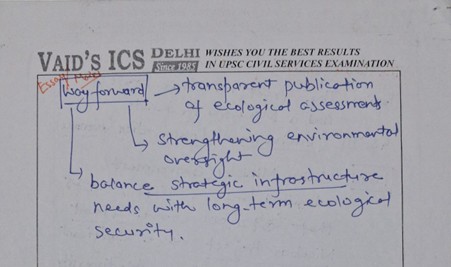 VAID'S ICS DELHI WISHES YOU THE BEST RESULTS
Since 1985 IN UPSC CIVIL SERVICES EXAMINATION
Way forward → transparent publication
of ecological assessments
→ strengthening environmental
oversight
→ balance strategic infrastructure
needs with long-term ecological
security.